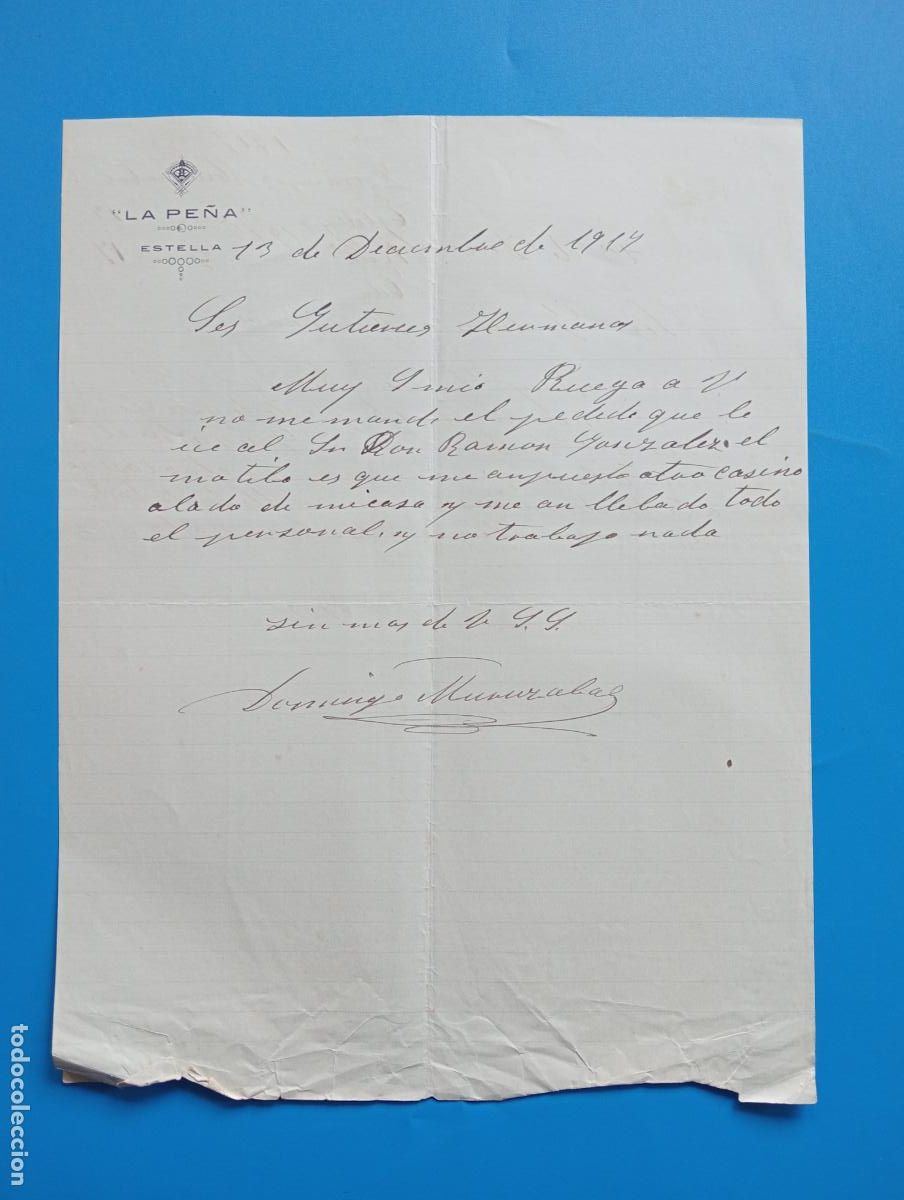 "LA PEÑA"
ESTELLA 13 de Deciembre de 1917
Ses Gutierres Hermanos
Muy S mio Ruego a V
no me mande el pedido que le
ice al Sr Don Ramon Gonzalez el
motibo es que me an puesto otro casino
alado de mi casa y me an llebado todo
el personal, y no trabajo nada
sin mas de V S.S.
Domingo Muruzabal
todocoleccion